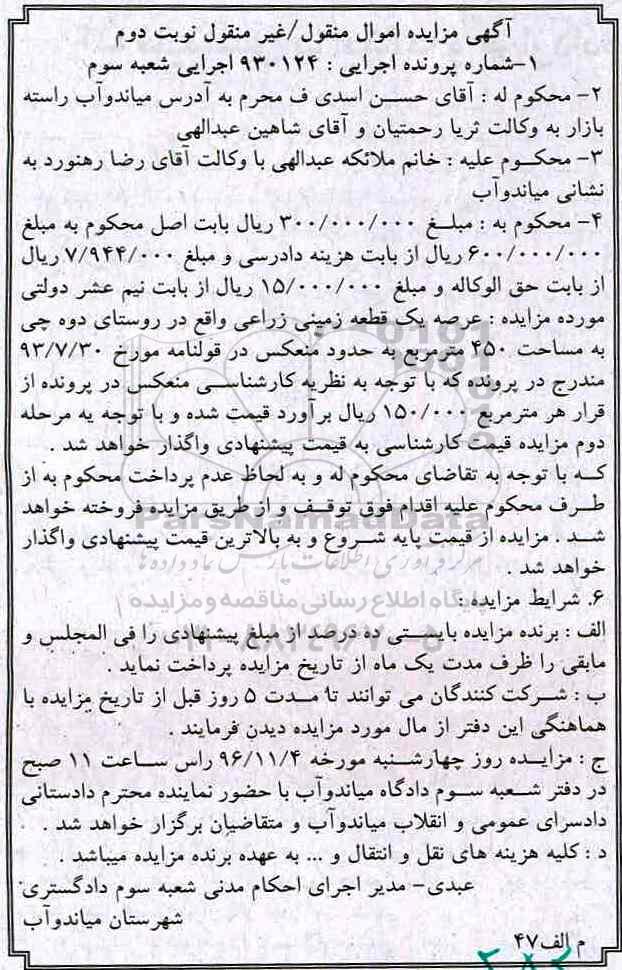 آگهی مزایده اموال منقول/غیر منقول نوبت دوم
۱-شماره پرونده اجرایی : ۹۳۰۱۲۴ اجرایی شعبه سوم
۲- محکوم له : آقای حسن اسدی ف محرم به آدرس میاندوآب راسته
بازار به وکالت ثریا رحمتیان و آقای شاهین عبدالهی
۳- محکوم علیه : خانم ملائکه عبدالهی با وکالت آقای رضا رهنورد به
نشانی میاندوآب
۴- محکوم به : مبلغ ۳۰۰/۰۰۰/۰۰۰ ریال بابت اصل محکوم به مبلغ
۶۰۰/۰۰۰/۰۰۰ ریال از بابت هزینه دادرسی و مبلغ ۷/۹۴۴/۰۰۰ ریال
از بابت حق الوکاله و مبلغ ۱۵/۰۰۰/۰۰۰ ریال از بابت نیم عشر دولتی
مورده مزایده : عرصه یک قطعه زمینی زراعی واقع در روستای دوه چی
به مساحت ۴۵۰ مترمربع به حدود منعکس در قولنامه مورخ ۹۳/۷/۳۰
مندرج در پرونده که با توجه به نظریه کارشناسی منعکس در پرونده از
قرار هر مترمربع ۱۵۰/۰۰۰ ریال برآورد قیمت شده و با توجه یه مرحله
دوم مزایده قیمت کارشناسی به قیمت پیشنهادی واگذار خواهد شد .
که با توجه به تقاضای محکوم له و به لحاظ عدم پرداخت محکوم به از
طرف محکوم علیه اقدام فوق توقف و از طریق مزایده فروخته خواهد
شد . مزایده از قیمت پایه شروع و به بالاترین قیمت پیشنهادی واگذار
خواهد شد .
۶. شرایط مزایده :
الف : برنده مزایده بایستی ده درصد از مبلغ پیشنهادی را فی المجلس و
مابقی را ظرف مدت یک ماه از تاریخ مزایده پرداخت نماید .
ب : شرکت کنندگان می توانند تا مدت ۵ روز قبل از تاریخ مزایده با
هماهنگی این دفتر از مال مورد مزایده دیدن فرمایند .
ج : مزایده روز چهارشنبه مورخه ۹۶/۱۱/۴ راس ساعت ۱۱ صبح
در دفتر شعبه سوم دادگاه میاندوآب با حضور نماینده محترم دادستانی
دادسرای عمومی و انقلاب میاندوآب و متقاضیان برگزار خواهد شد .
د : کلیه هزینه های نقل و انتقال و ... به عهده برنده مزایده میباشد .
عبدی- مدیر اجرای احکام مدنی شعبه سوم دادگستری
شهرستان میاندوآب
م الف۴۷
ParsNamadData
پایگاه اطلاع رسانی مناقصه و مزایده